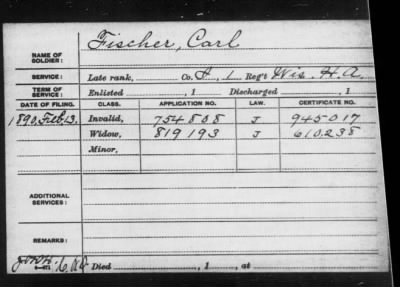 NAME OF SOLDIER: Fischer, Carl
SERVICE: Late rank, Co. A, 1 Reg't Wis. H. A.
TERM OF SERVICE: Enlisted , 1 Discharged , 1
DATE OF FILING. CLASS. APPLICATION NO. LAW. CERTIFICATE NO.
1890, Feb. 13. Invalid, 754808 J 945017
Widow, 819193 J 610238
Minor,
ADDITIONAL SERVICES:
REMARKS:
Died , 1 , at